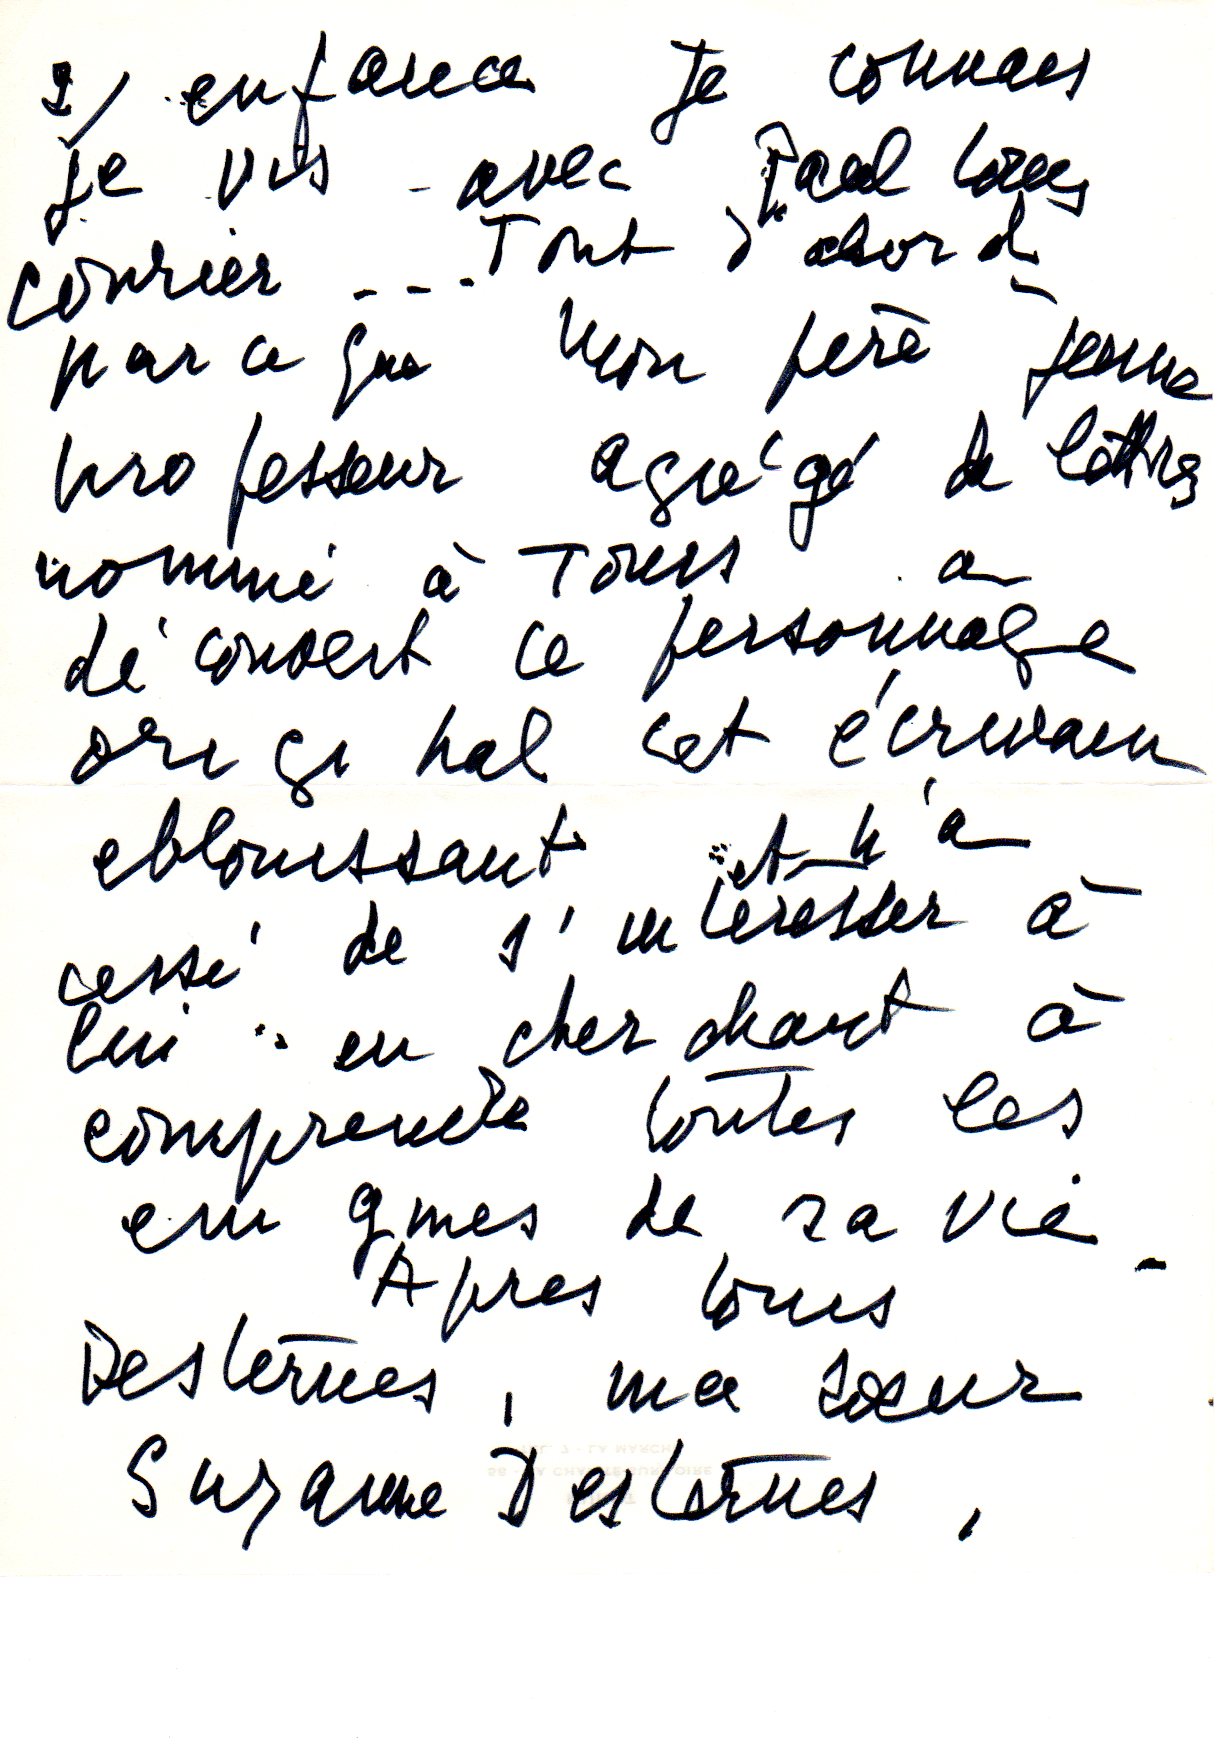 2/ enfance Je connais
je vis avec Paul Louis
Courier ... Tout d'abord
parce que mon père jeune
professeur agrégé de lettres
nommé à Tours a
découvert ce personnage
original cet écrivain
eblouissant et n'a
cessé de s'intéresser à
lui .. en cherchant à
comprendre toutes les
enigmes de sa vie -
Apres Louis
Desternes, ma sœur
Suzanne Desternes,